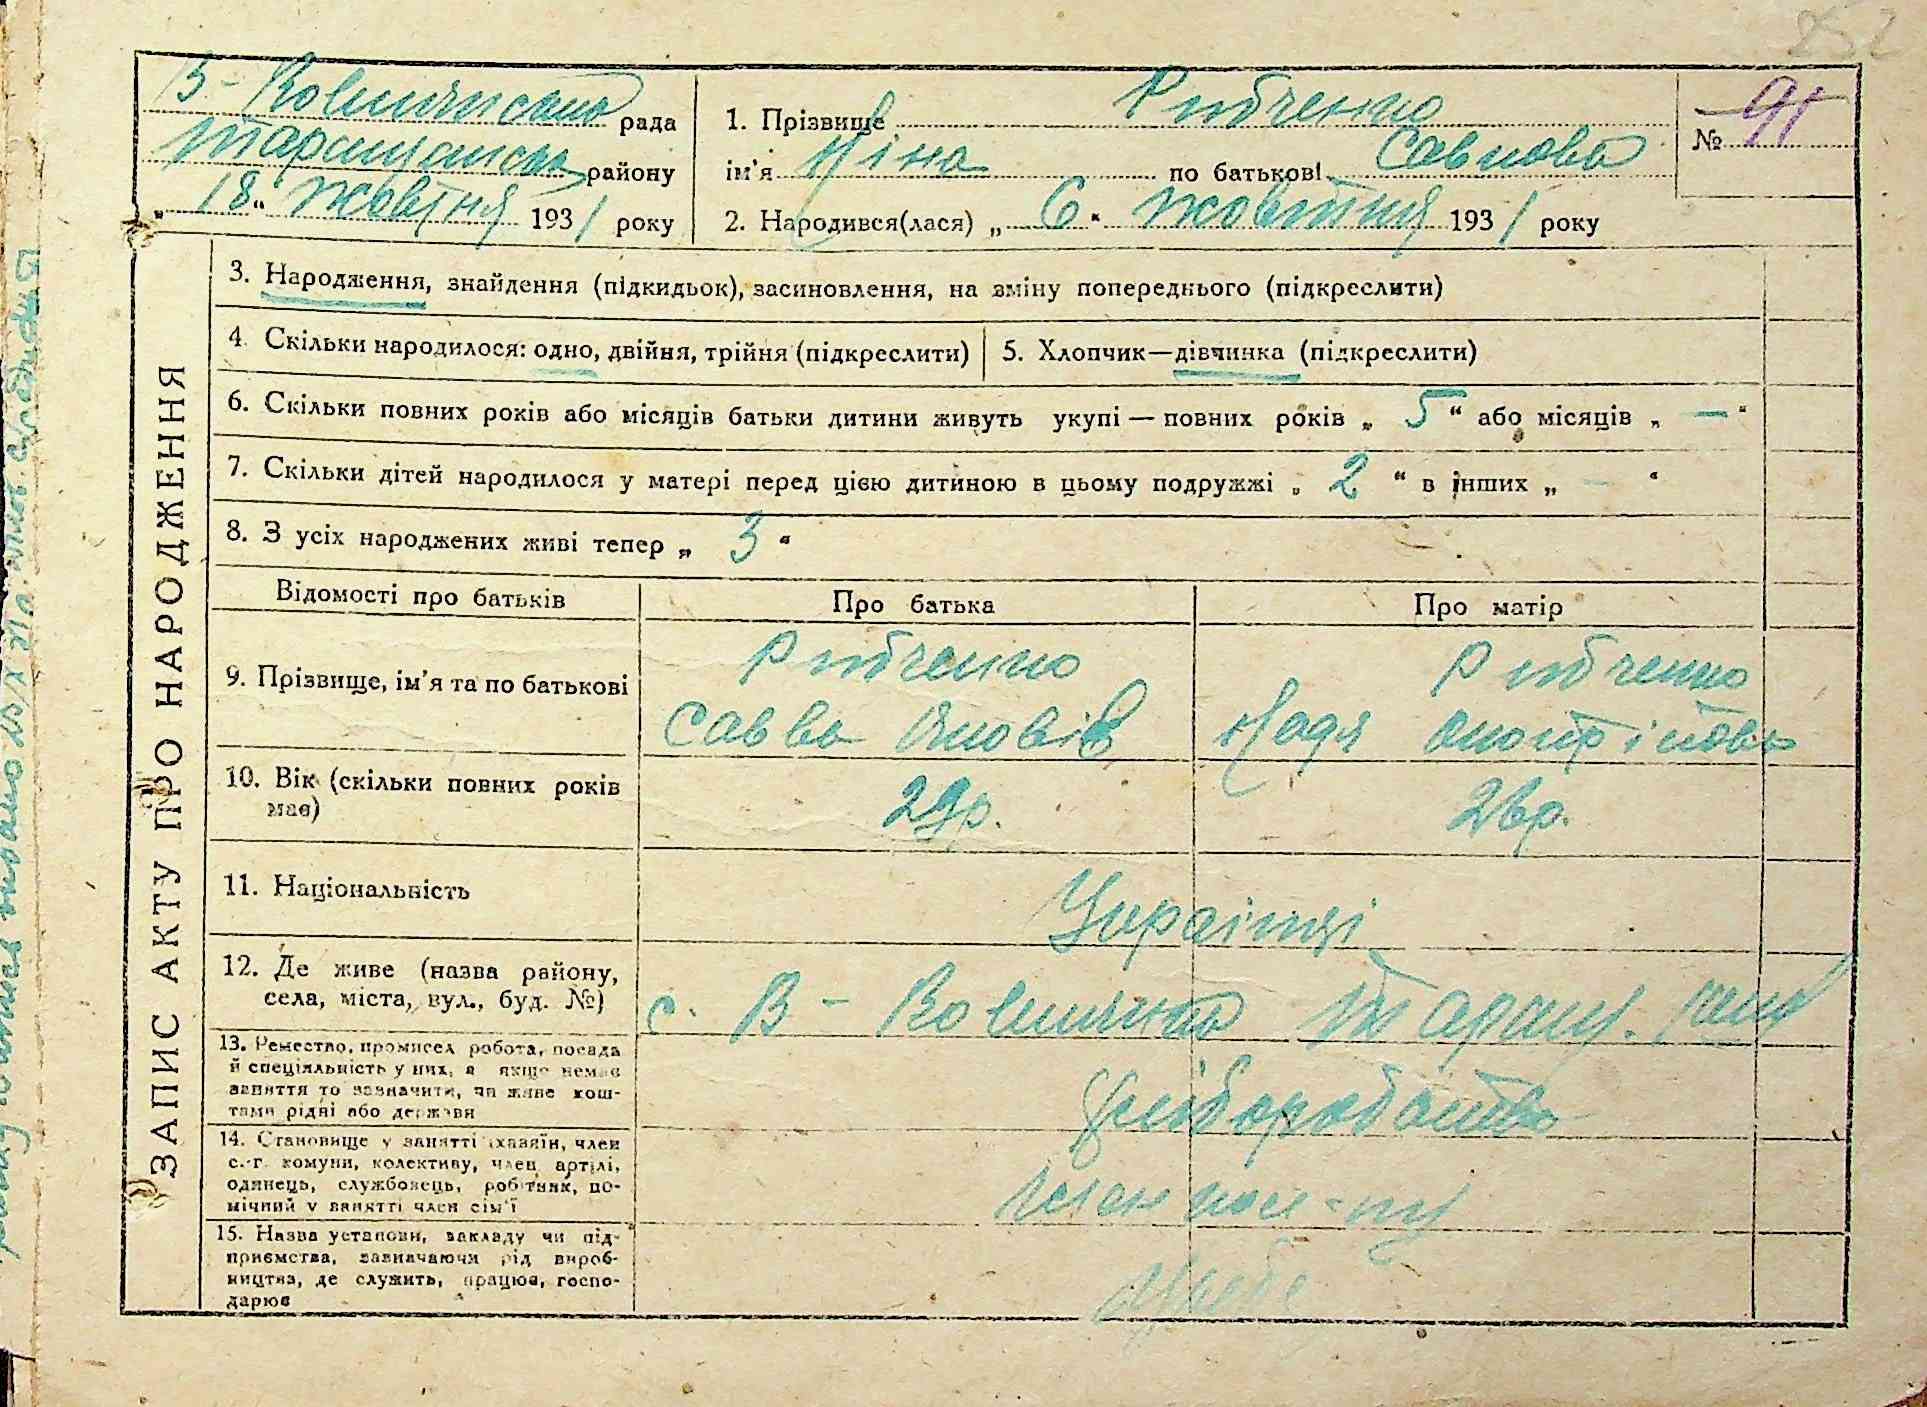 252
В - Вовнянська рада
Таращанськ району
„ 18 " жовтня 1931 року
1. Прізвище Рибченко
ім'я Ніна по батькові Савова
2. Народився(лася) „ 6 " жовтня 1931 року
№ 91
ЗАПИС АКТУ ПРО НАРОДЖЕННЯ
3. Народження, знайдення (підкидьок), засиновлення, на зміну попереднього (підкреслити)
4. Скільки народилося: одно, двійня, трійня (підкреслити)
5. Хлопчик—дівчинка (підкреслити)
6. Скільки повних років або місяців батьки дитини живуть укупі — повних років „ 5 " або місяців „ — "
7. Скільки дітей народилося у матері перед цією дитиною в цьому подружжі „ 2 " в інших „ — "
8. З усіх народжених живі тепер „ 3 "
Відомості про батьків Про батька Про матір
9. Прізвище, ім'я та по батькові
Рибченко
Савва Яковів
Рибченко
Надя
10. Вік (скільки повних років
має)
29р. 26р.
11. Національність
Українці
12. Де живе (назва району,
села, міста, вул., буд. №)
с. В - Таращ.
13. Ремество, промисел робота, посада
й спеціяльність у них, а якщо немає
заняття то зазначити, чи живе кош-
тами рідні або держави
Хліборобство
14. Становище у занятті (хазяїн, член
с.-г. комуни, колективу, член артілі,
одинець, службовець, робітник, по-
мічний у занятті член сім'ї
член кол-пу
15. Назва установи, закладу чи під-
приємства, зазначаючи рід вироб-
ництва, де служить, працює, госпо-
дарює